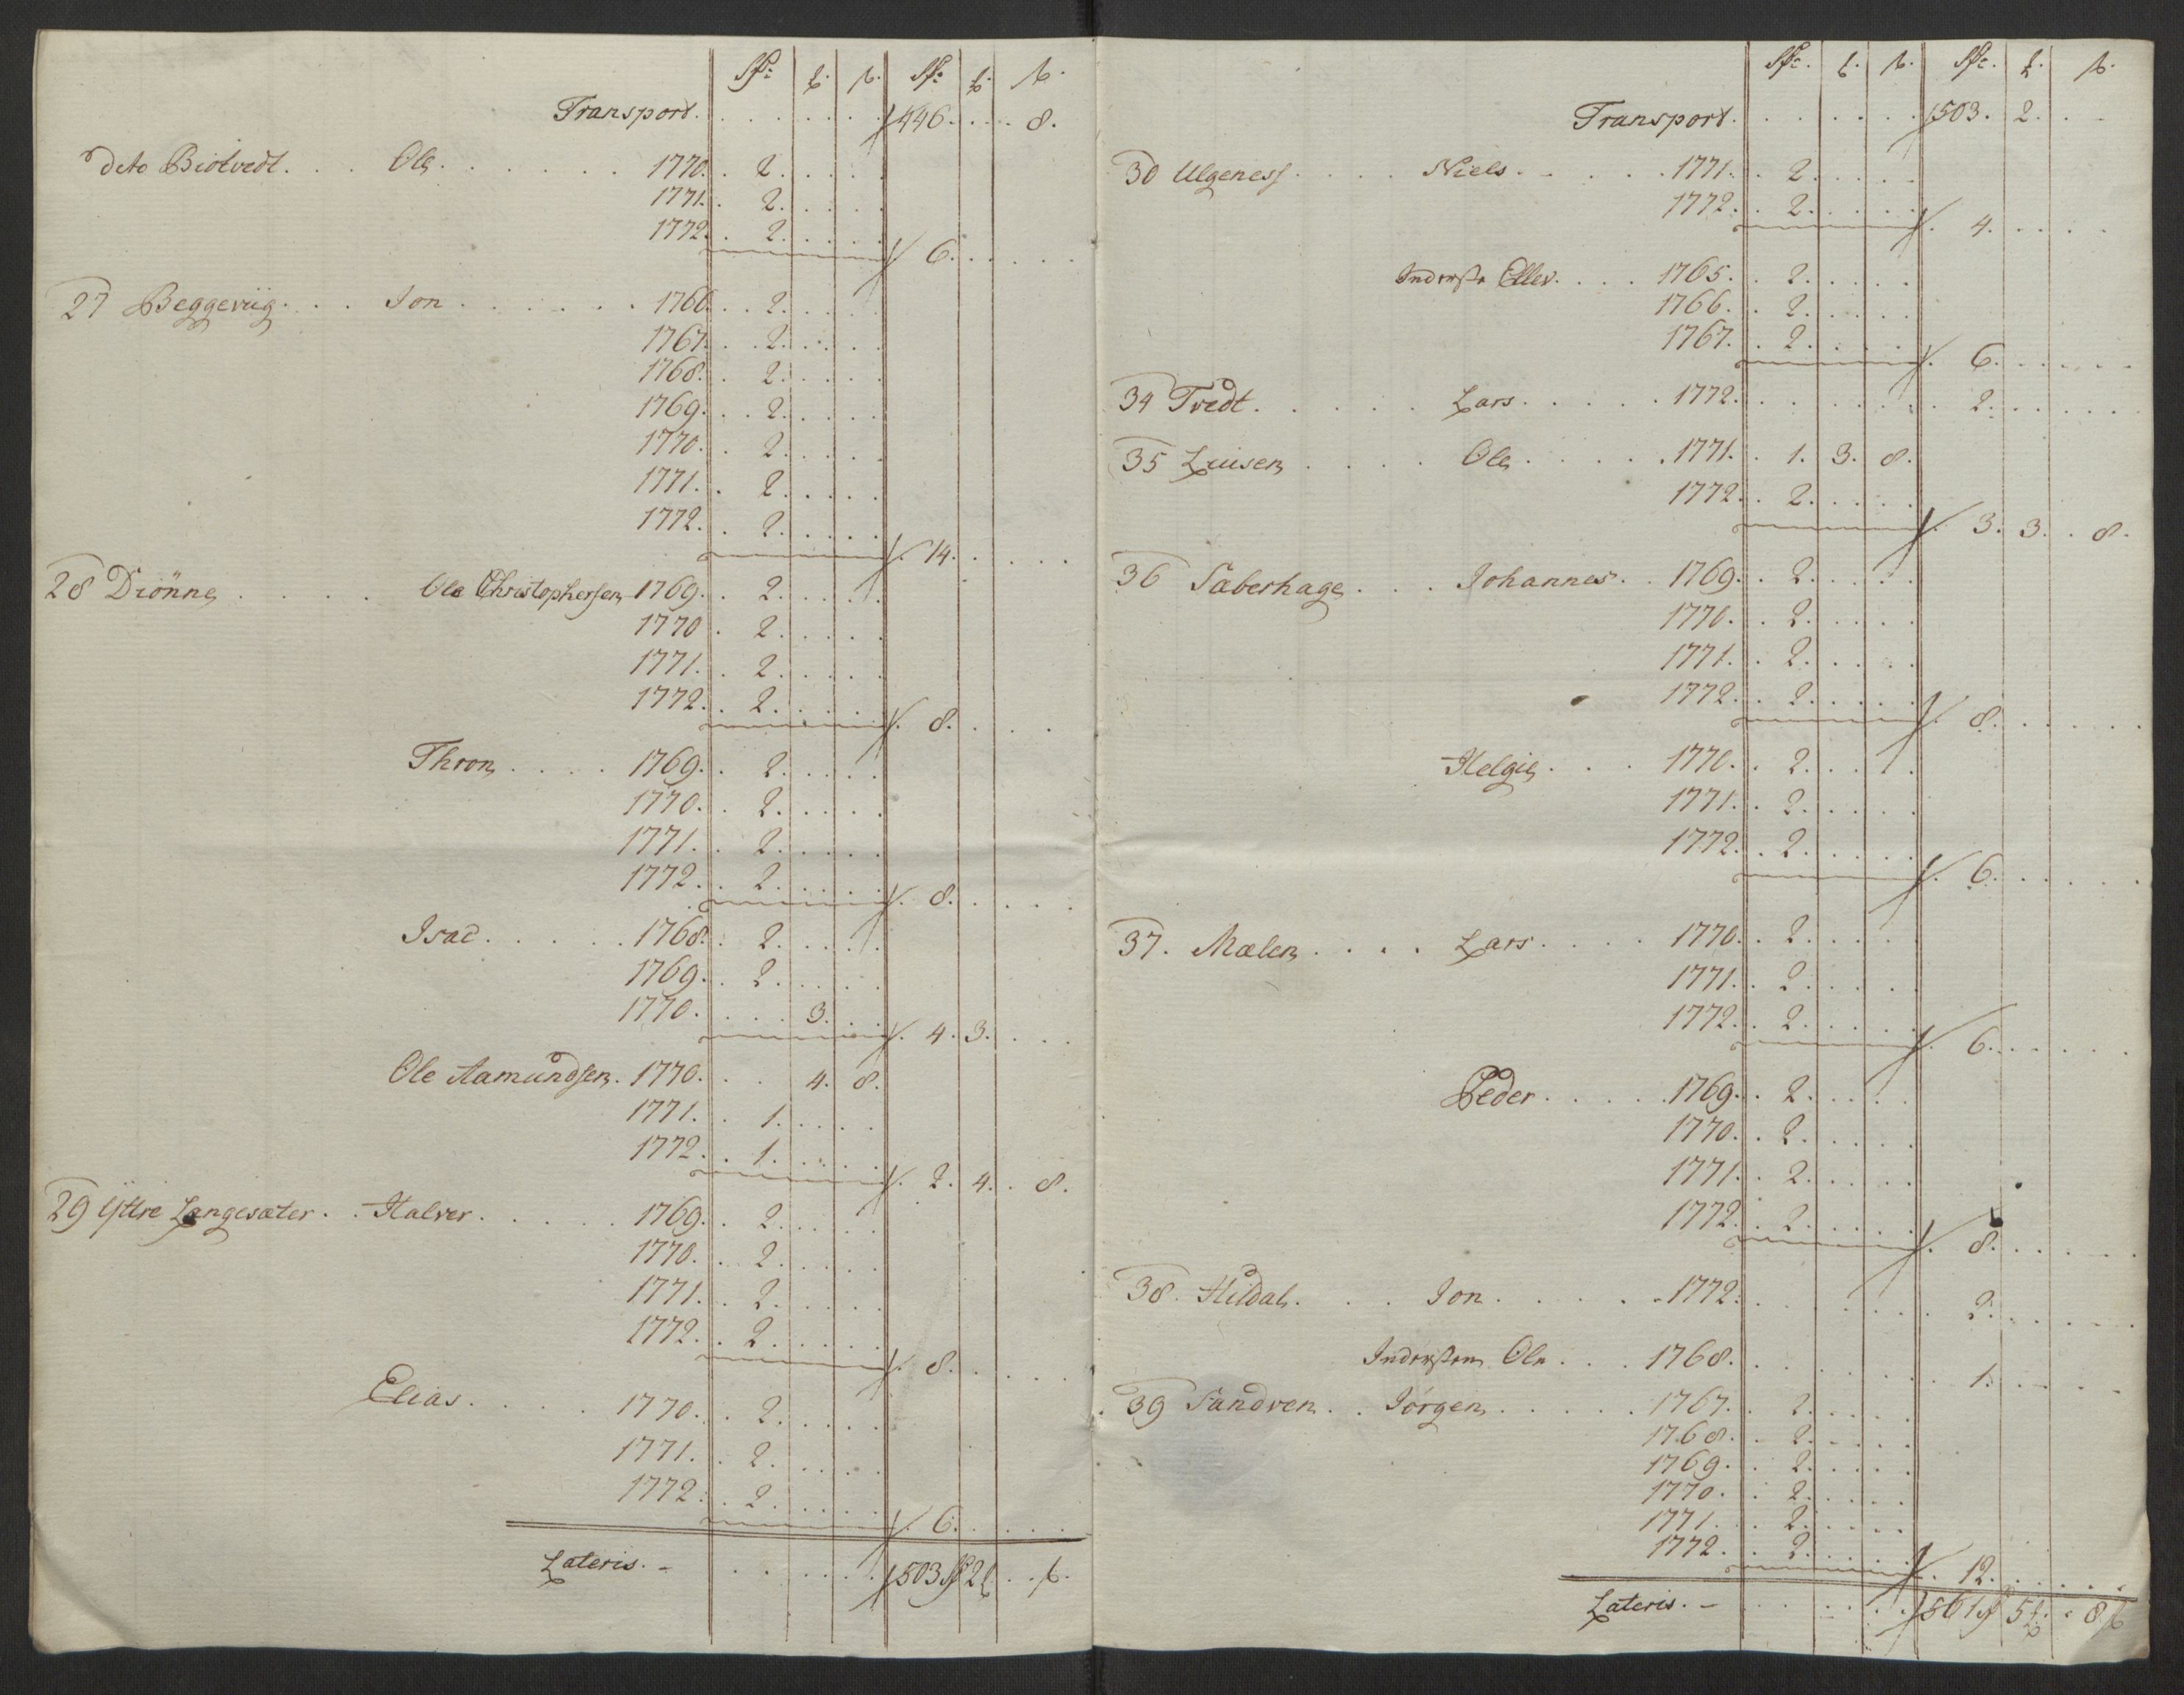 Transport. 446. 8.
dito Biotvedt. Ole. 1770. 2.
1771. 2.
1772. 2.
6.
27 Beggeviig. Jon 1766. 2.
1767. 2.
1768. 2.
1769. 2.
1770. 2.
1771. 2.
1772. 2.
14.
28 Diönne Ole Christophersen 1769. 2.
1770 2.
1771. 2.
1772. 2.
8.
Thron 1769. 2.
1770. 2.
1771. 2.
1772. 2.
8.
Isac. 1768. 2.
1769. 2.
1770. 3.
4. 3.
Ole Aamundsen. 1770. 4. 8.
1771. 1.
1772. 1.
2. 4. 8.
29 Ÿttre Langesæter. Halver. 1769. 2.
1770. 2.
1771. 2.
1772. 2.
8.
Elias. 1770. 2.
1771. 2.
1772. 2.
6.
Lateris. 503 2
Transport. 503. 2.
30 Ulgeness Niels. 1771. 2.
1772. 2.
4.
Inderste Ellev. 1765. 2.
1766. 2.
1767. 2.
6.
34 Tvedt. Lars. 1772. 2.
35 Liusen Ole 1771. 1. 3. 8.
1772. 2.
3. 3. 8.
36 Saberhage Johannes. 1769. 2.
1770. 2.
1771. 2.
1772. 2.
8.
Helgie 1770. 2.
1771. 2.
1772. 2.
6.
37. Mælen Lars 1770. 2.
1771. 2.
1772. 2.
6.
Peder. 1769. 2.
1770. 2.
1771. 2.
1772. 2.
8.
38. Hildal. Jon 1772. 2.
Indersten Ole 1768. 1.
39 Sandven. Jörgen 1767. 2.
1768. 2.
1769. 2.
1770. 2.
1771. 2.
1772. 2.
12.
Lateris. 561 5 8